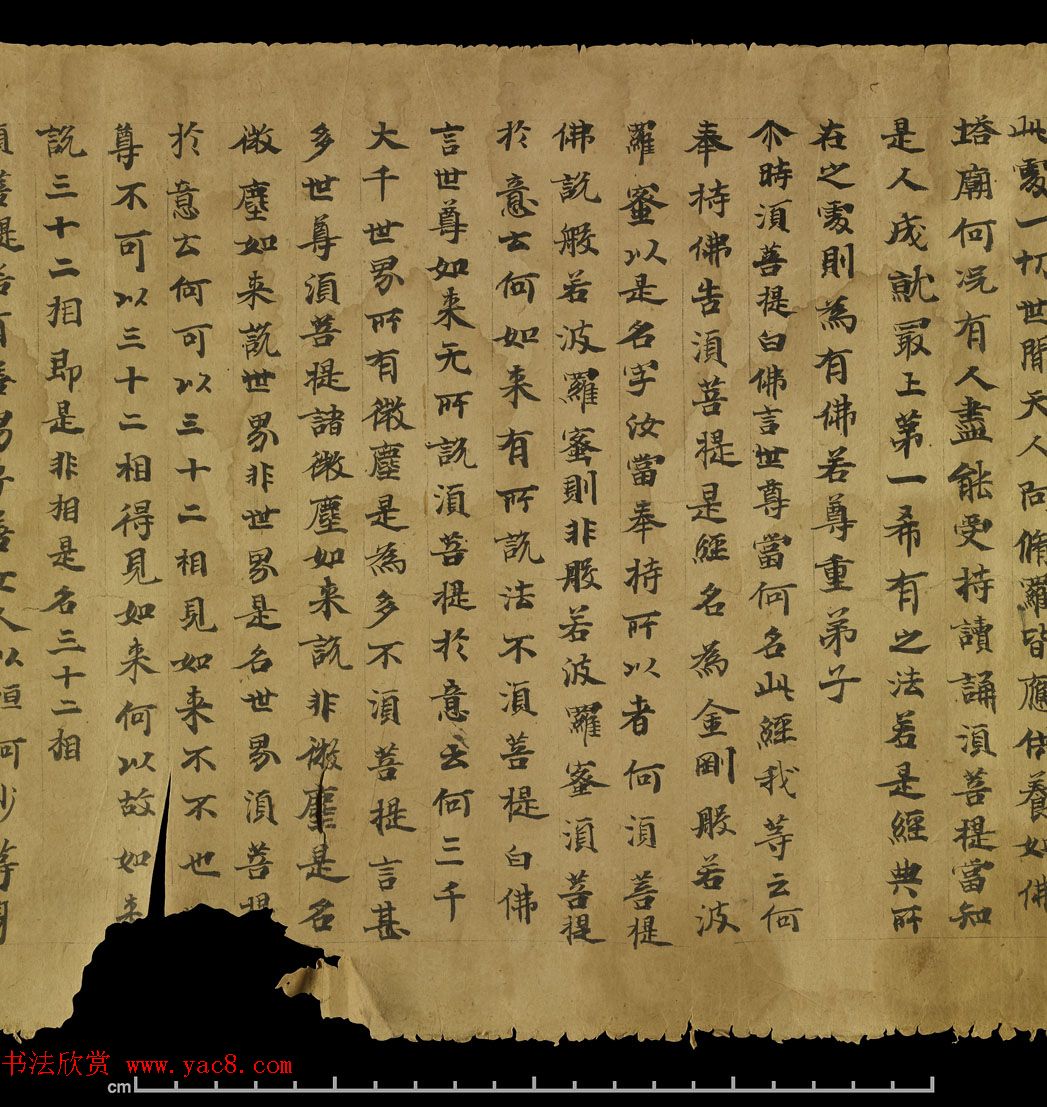 此處一切世間天人阿脩羅皆應供養如佛
塔廟何況有人盡能受持讀誦須菩提當知
是人成就最上第一希有之法若是經典所
在之處則為有佛若尊重弟子
尒時須菩提白佛言世尊當何名此經我等云何
奉持佛告須菩提是經名為金剛般若波
羅蜜以是名字汝當奉持所以者何須菩提
佛說般若波羅蜜則非般若波羅蜜須菩提
於意云何如来有所說法不須菩提白佛
言世尊如来无所說須菩提於意云何三千
大千世界所有微塵是為多不須菩提言甚
多世尊須菩提諸微塵如来說非微塵是名
微塵如来說世界非世界是名世界須菩提
於意云何可以三十二相見如来不不也
尊不可以三十二相得見如来何以故如来
說三十二相即是非相是名三十二相
須菩提若有善男子善女人以恒河沙等身
书法欣赏 www.yac8.com
cm